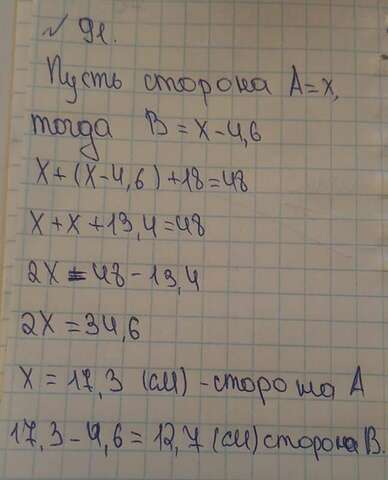 № 91.
Пусть сторона A=x,
тогда B=x-4,6
x+(x-4,6)+18=48
x+x+13,4=48
2x=48-13,4
2x=34,6
x=17,3 (см) - сторона A
17,3-4,6=12,7 (см) сторона B.